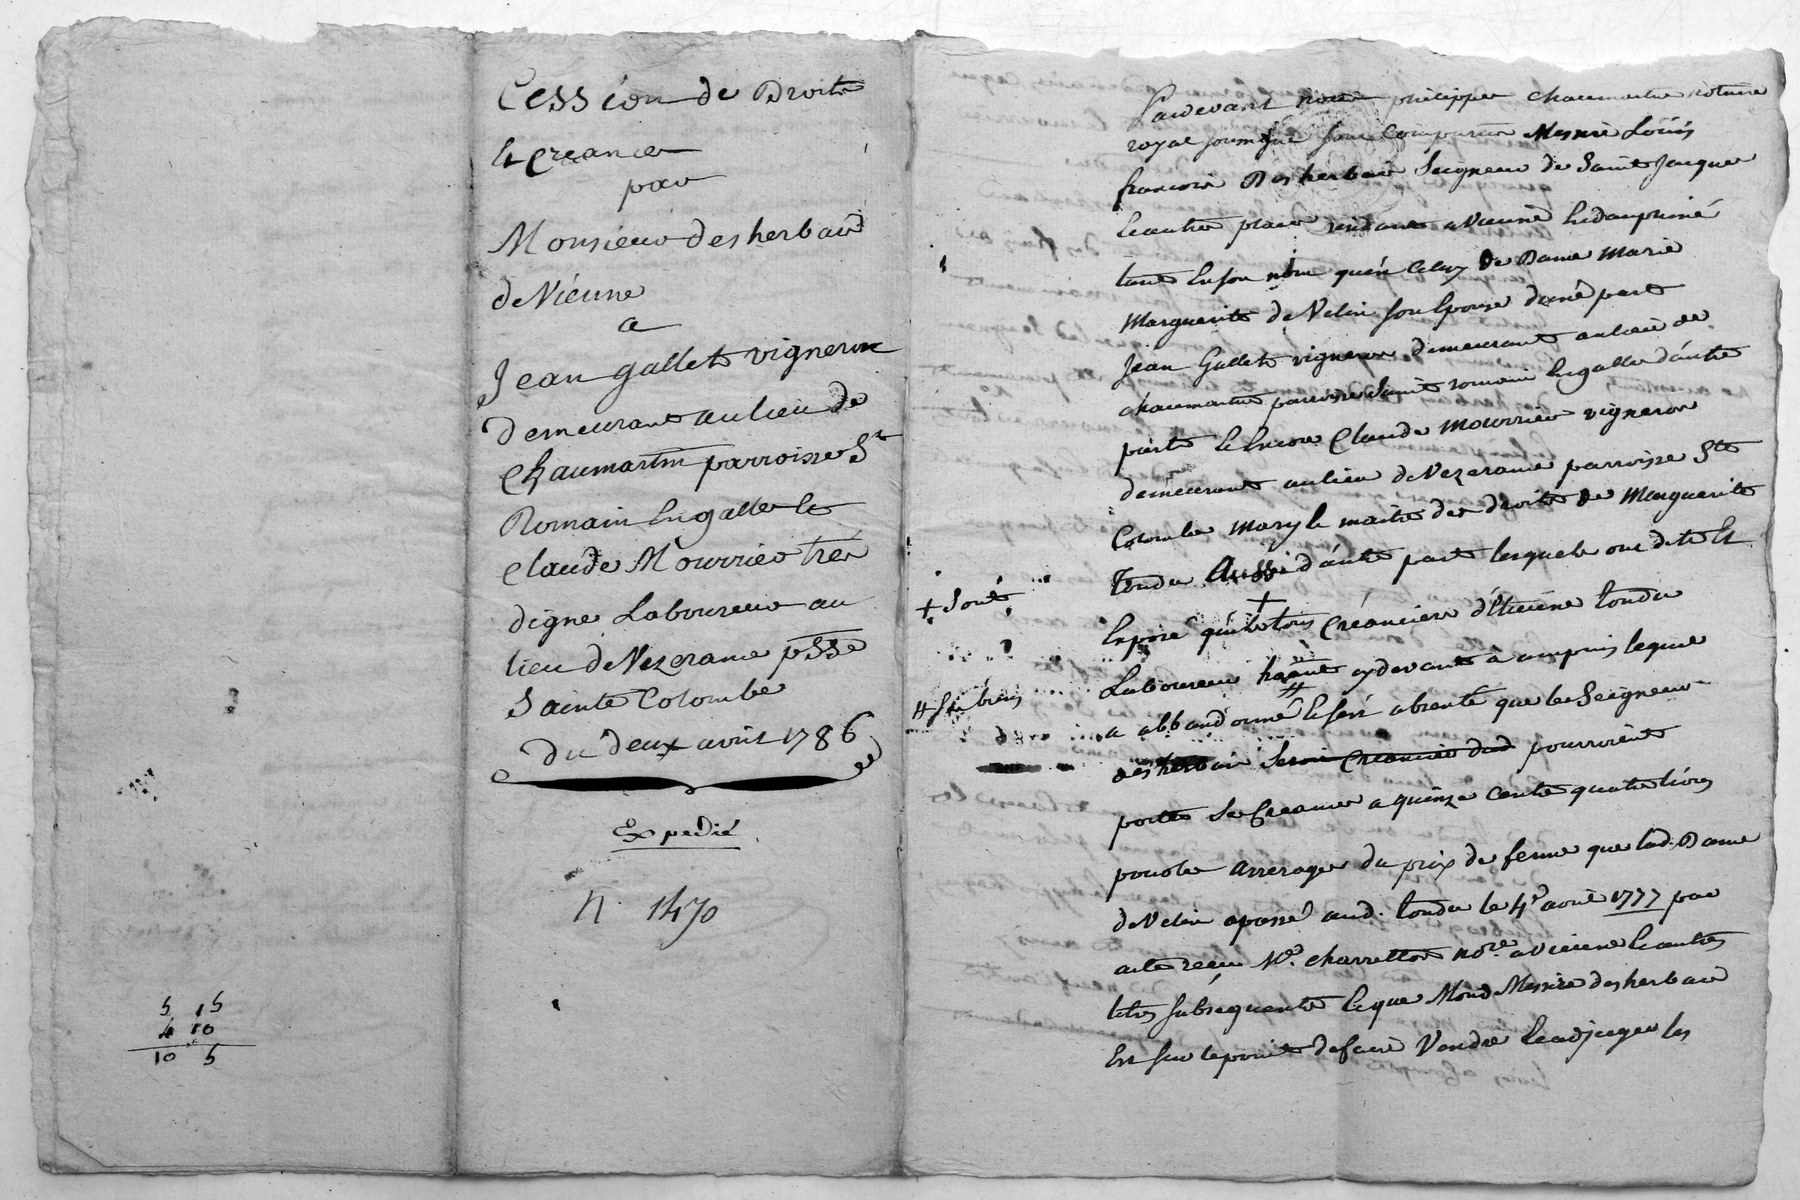 Cession de Droits
et creances
par
Monsieur desherbais
de Viénne
a
Jean gallets vigneron
demeurant au lieu de
chaumartin parroisse St
Romain en galles et
claude Mourrier très
digne Laboureur au
lieu de Vezerance psse
Sainte Colombe
du deux avril 1786
Expedié
N. 1470
5 15
4 10
10 5
Pardevant nous philippe chaumartin notaire
royal soussigné sont comparus Messire Loüis
francois Desherbais Seigneur de Saint Jacques
et autres places residant a Vienne en dauphiné
tant en son nom qu'en celuy de Dame Marie
Marguerite de Velin son Epouse d'une part
Jean Gallets vigneron demeurant au lieu de
chaumartin parroisse Saint romain en galles d'autre
part et encore Claude Mourrier vigneron
demeurant au lieu de Vezerance parroisse Ste
Colombe mary et maitre des droits de Marguerite
tondu Aussi d'autre part lesquels ont dit et
+ Sont
Exposé qu'ils + tous Créanciers d'Etienne tondu
Laboureur hant cy devant à ampuis lequel
# ses biens
a abbandonné # et s'est absenté que le Seigneur
desherbais seroit Creancier dud pourroient
porter sa Creance a quinze cents quatre livres
pour les arrerages du prix de ferme que lad. Dame
de Velin a passé aud. tondu le 4e avril 1777 par
acte reçu Me. charretton nore a Vienne et autres
titres subsequents et que Mond Messire desherbais
Est sur le point de faire Vendre et adjuger les